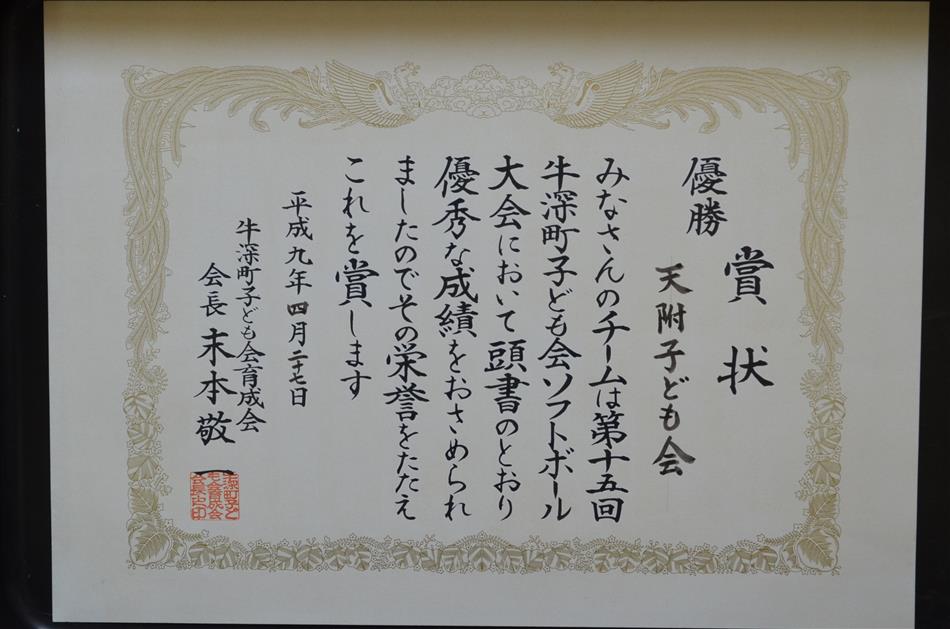 賞状
優勝
天附子ども会
みなさんのチームは第十五回
牛深町子ども会ソフトボール
大会において頭書のとおり
優秀な成績をおさめられ
ましたのでその栄誉をたたえ
これを賞します
平成九年四月二十七日
牛深町子ども会育成会
会長末本敬一
牛深町子ど
も会育成会
会長之印